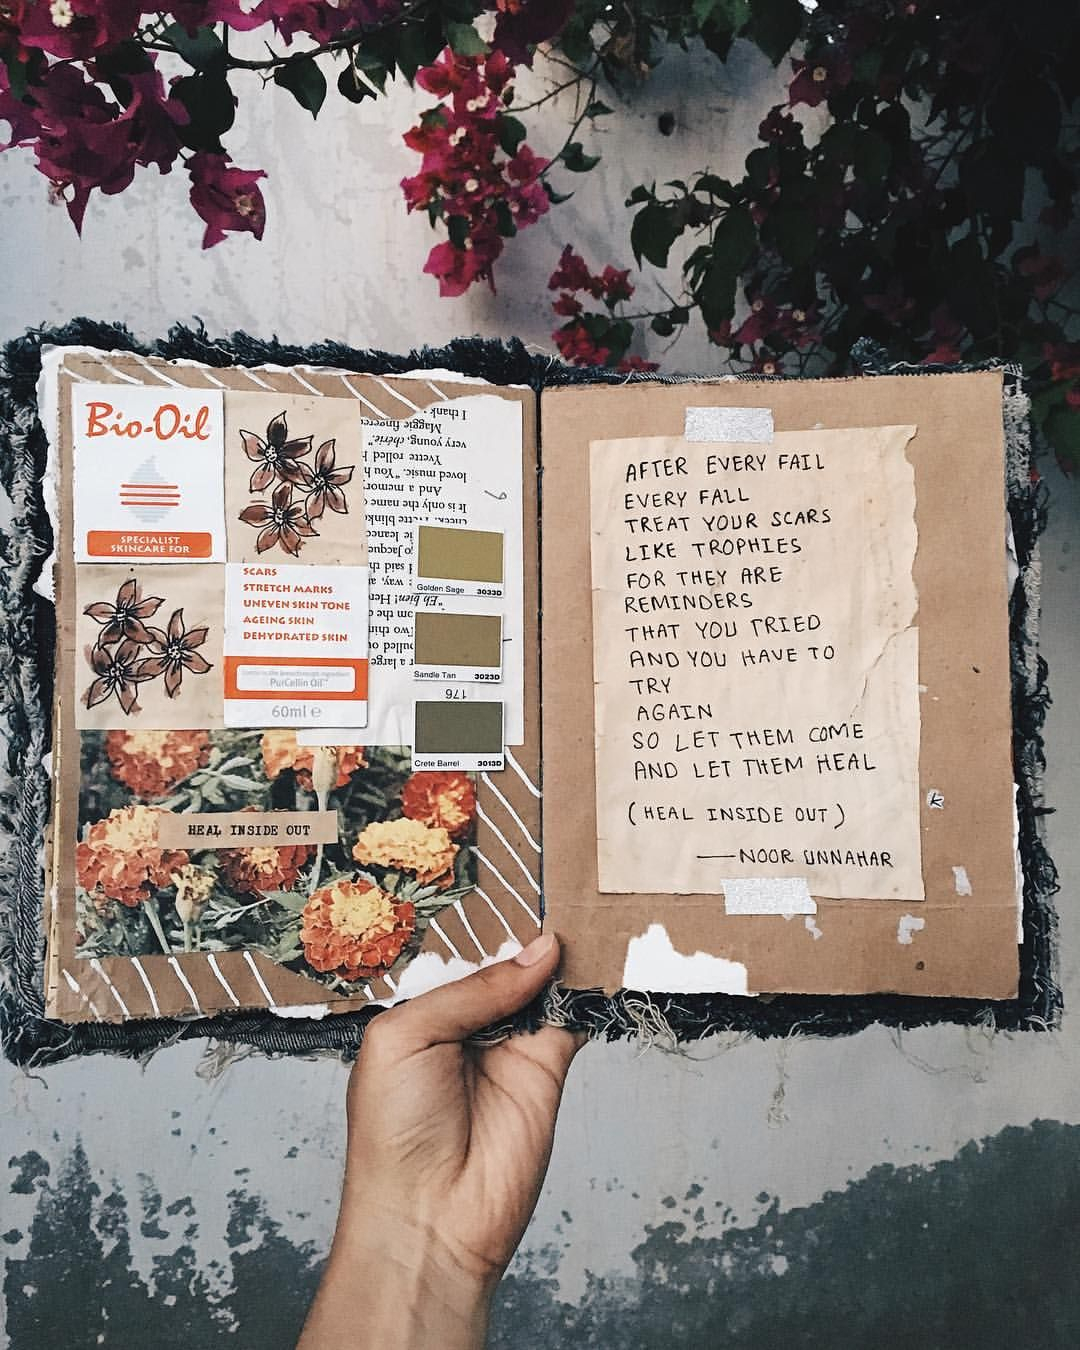 Bio-Oil
SPECIALIST
SKINCARE FOR
SCARS
STRETCH MARKS
UNEVEN SKIN TONE
AGEING SKIN
DEHYDRATED SKIN
PurCellin Oil™
60ml e
I thank
Maggie fingered
very young, chérie."
Yvette rolled
loved music. "You
And a memory
It is only the name
176
Golden Sage 3033D
Sandle Tan 3023D
Crete Barrel 3013D
HEAL INSIDE OUT
AFTER EVERY FAIL
EVERY FALL
TREAT YOUR SCARS
LIKE TROPHIES
FOR THEY ARE
REMINDERS
THAT YOU TRIED
AND YOU HAVE TO
TRY
AGAIN
SO LET THEM COME
AND LET THEM HEAL
(HEAL INSIDE OUT)
—NOOR UNNAHAR
K